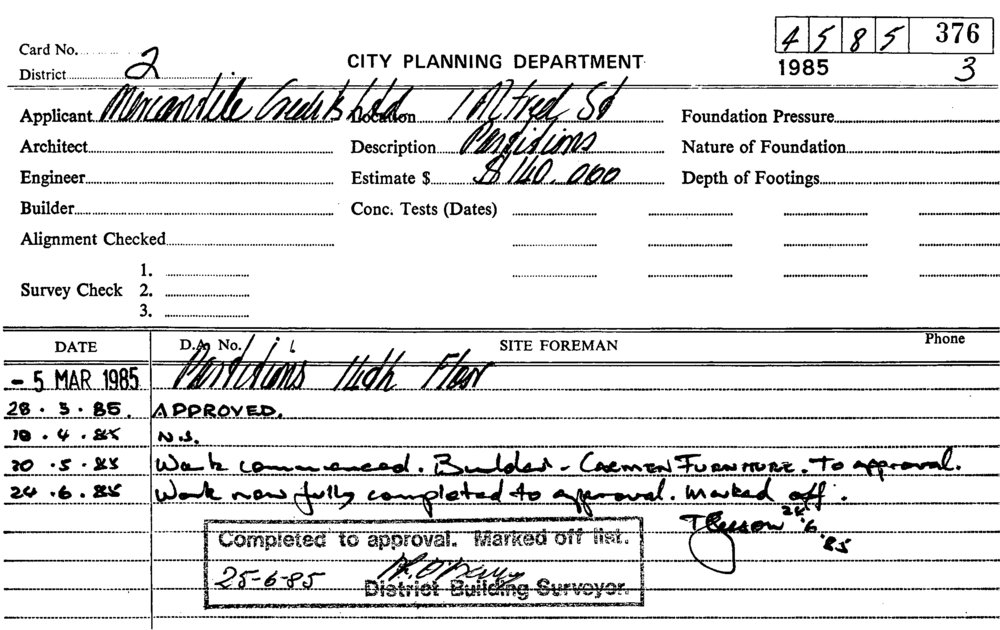 4 5 8 5 376
Card No.
CITY PLANNING DEPARTMENT
1985 3
District 2
Applicant Mercantile Credits Ltd Location 1 Alfred St Foundation Pressure
Architect Description Partitions Nature of Foundation
Engineer Estimate $ $140.000 Depth of Footings
Builder Conc. Tests (Dates)
Alignment Checked
1.
Survey Check 2.
3.
DATE D.A. No. SITE FOREMAN Phone
- 5 MAR 1985 Partitions 14th Floor
28 . 3 . 85. APPROVED.
18 . 4 . 85 N.S.
20 . 5 . 85 Work commenced. Builder - CARMEN FURNITURE. To approval.
24 . 6 . 85 Work now fully completed to approval. Marked off.
24.6.85
Completed to approval. Marked off list.
25-6-85
District Building Surveyor.